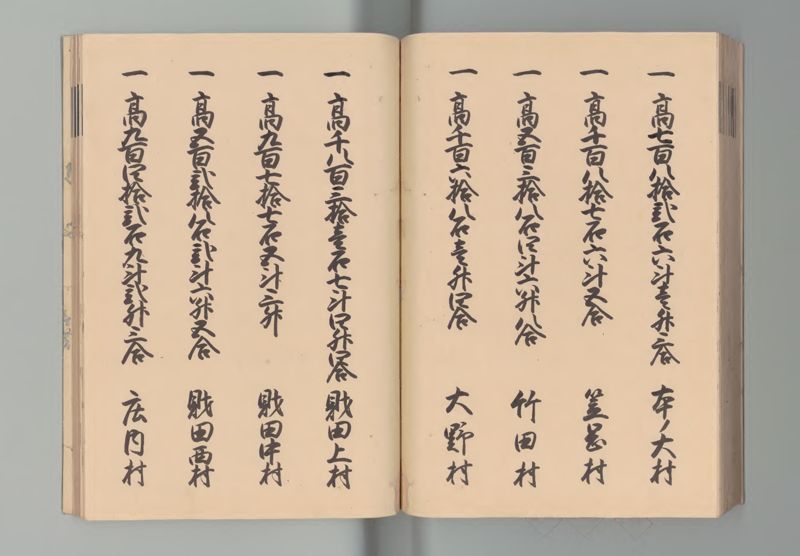 一 高七百八拾弐石六斗壱升三合 本ノ大村
一 高千百八拾七石六斗五合 笠岡村
一 高五百三拾八石四斗六升八合 竹田村
一 高千百六拾八石壱升四合 大野村
一 高千八百三拾壱石七斗四升四合 財田上村
一 高九百七拾七石五斗三升 財田中村
一 高五百弐拾八石弐斗六升五合 財田西村
一 高九百四拾弐石九斗弐升三合 庄内村